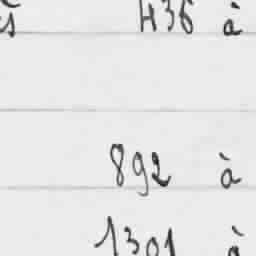 436 à
892 à
1301 à